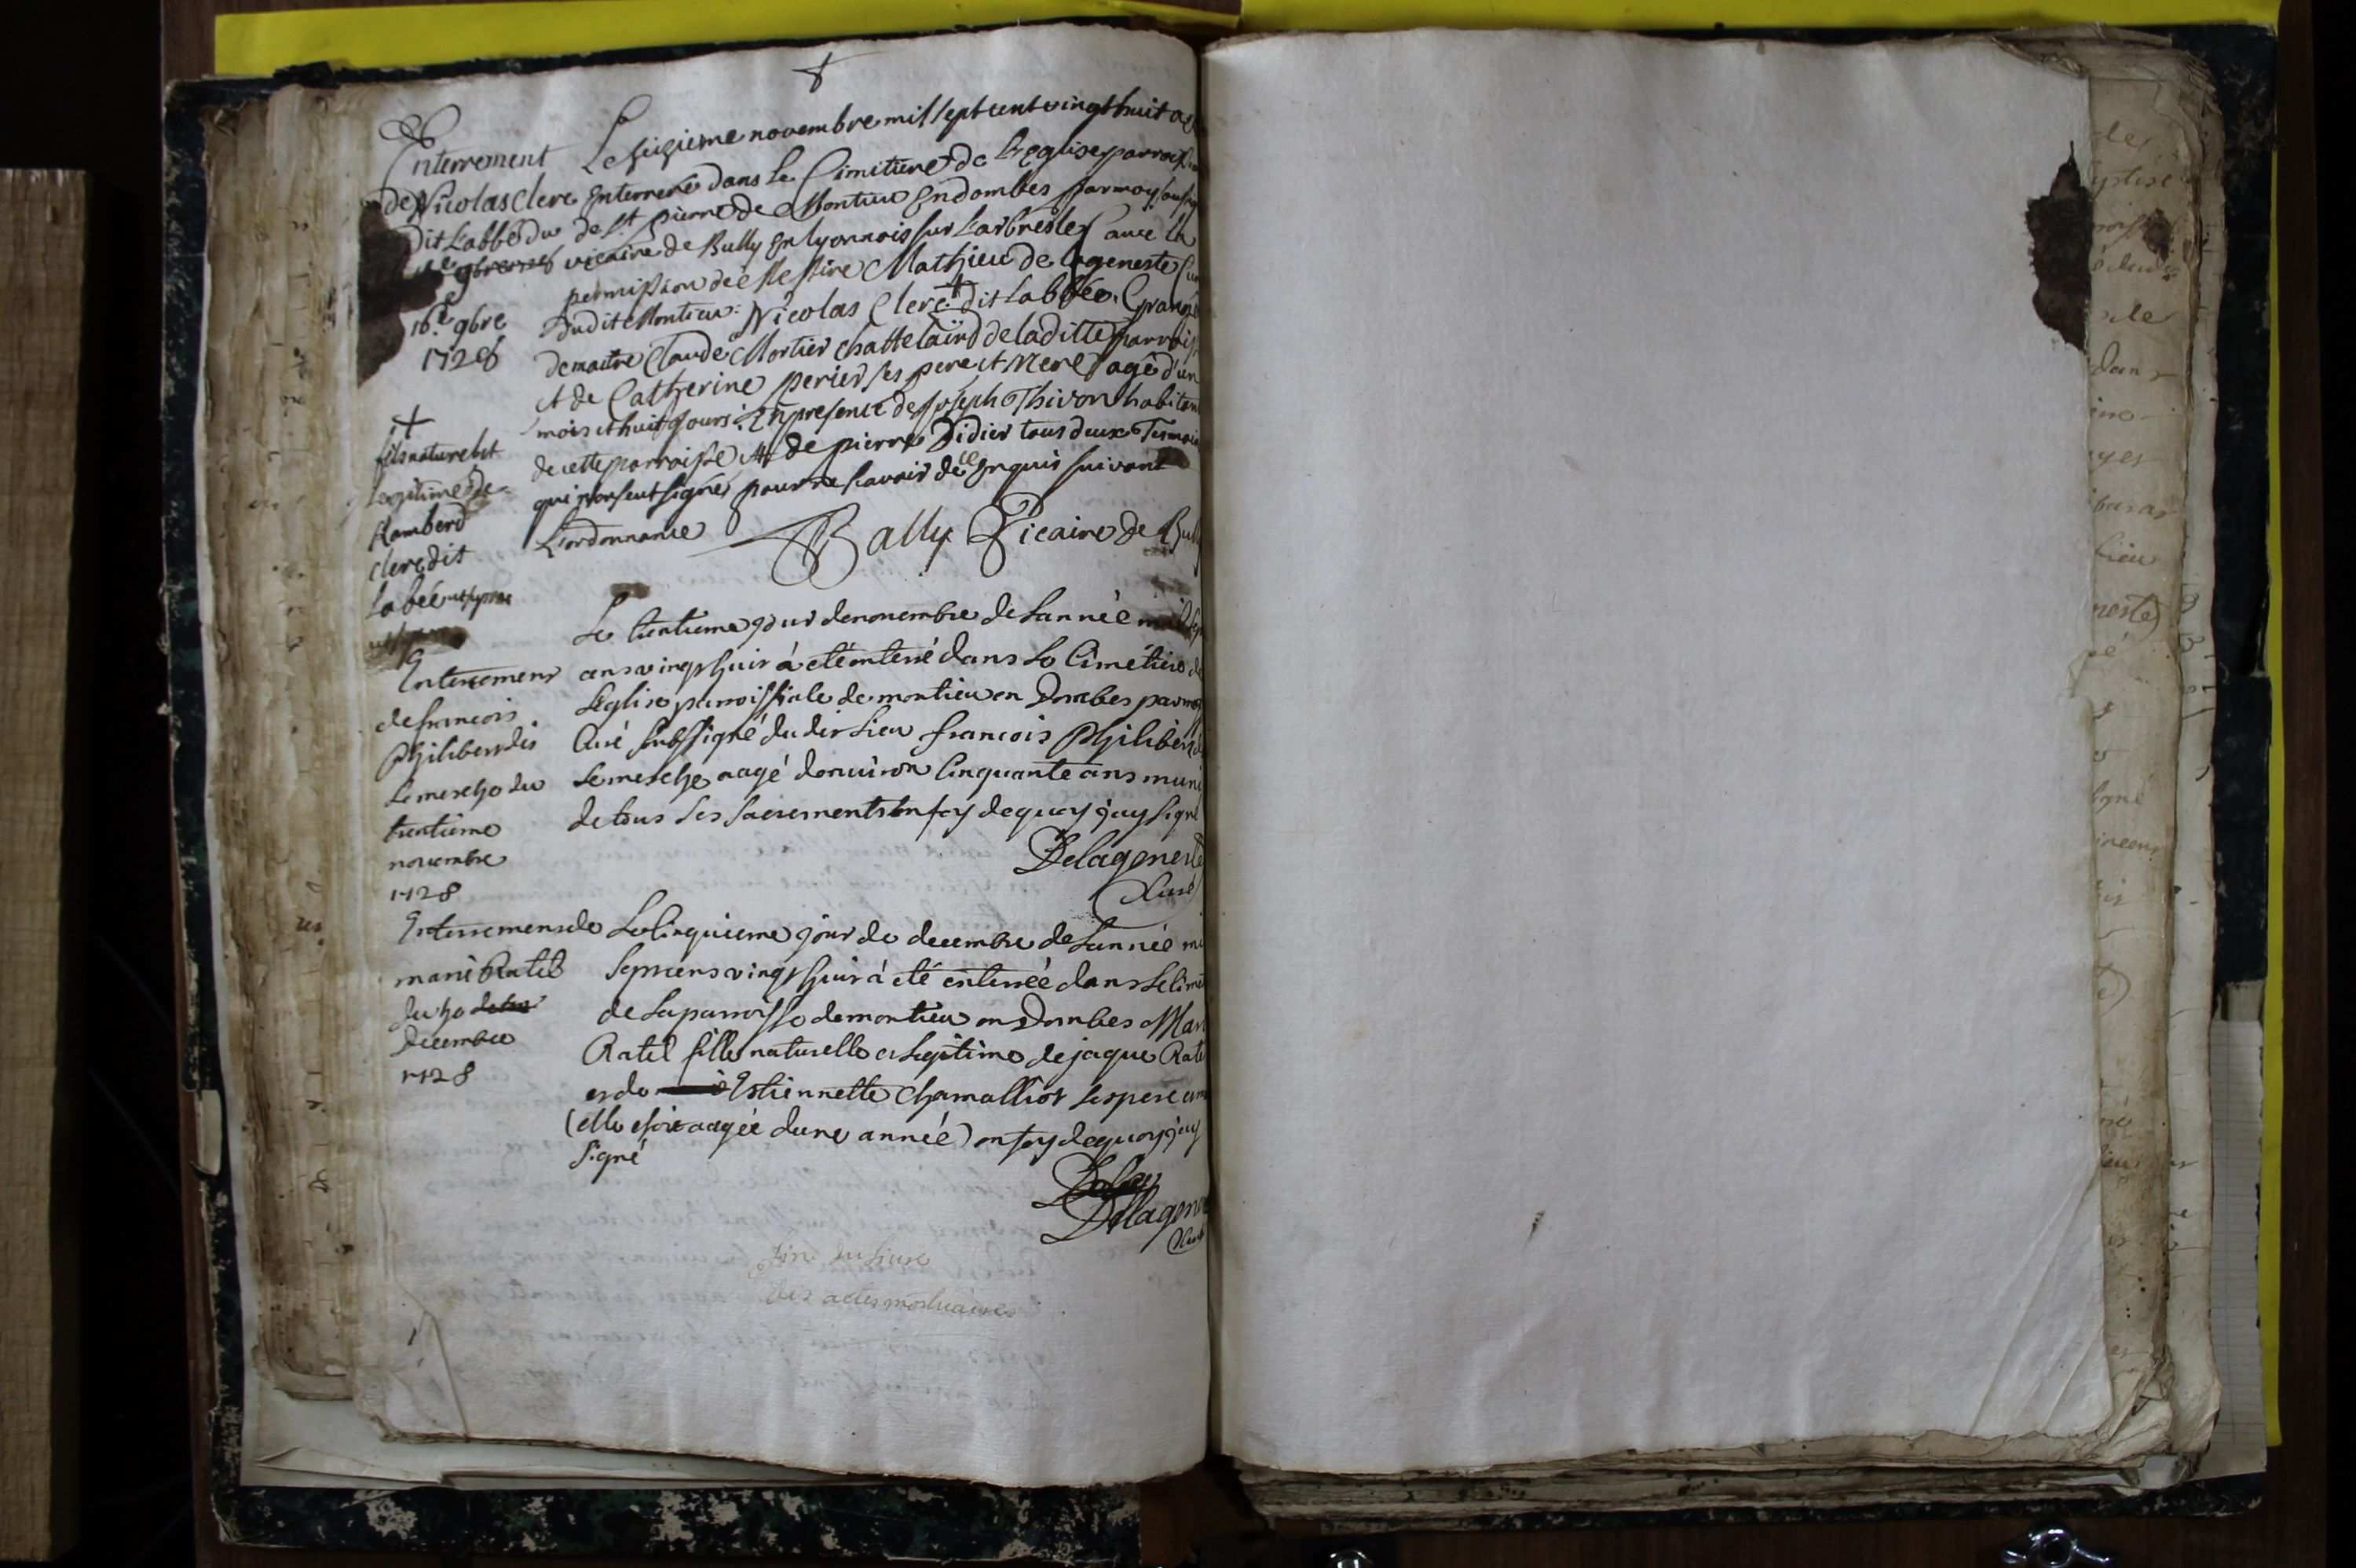 Enterrement
de Nicolas Clerc
Dit Labbé du
16.e 9bre
1728
Le seizieme novembre mil sept cent vingt huit a
Enterreré dans Le Cimitiere de Leglise parrois
de St pierre de Montieu En dombes par moy sousig
vicaire de Bully En lyonnois sur Larbresle avec la
permission de Messire Mathieu de lageneste Cur
Dudit Montieu: Nicolas Clerc + dit Labbée. Grangé
de maitre Claude Mortier chattelaind de laditte parrois
et de Catherine perier ses pere et Mere agé d'un
mois et huit jours: En presence de Joseph Thivon habitan
de cette parroisse et de pierre Didier tous deux Temoin
qui n'ont sçeut signés pour ne scavoir de ce Enquis suivant
L'ordonnance
Bally Vicaire de Bul
+
fils naturel et
Legitime de
Ramberd
clerc dit
Labée
Enterrement
de francois
Philibert dit
Lemesche du
trentieme
novembre
1728
Le trentieme jour de novembre de Lannée mil sep
cens vingt huit à eté enterré dans Le Cimetiere de
Leglise parroissiale de montieu en Dombes par moy
Curé soubssigné dudit Lieu francois Philibert d
Lemesche aagé denuiron Cinquante ans muni
de tous Les sacrements En foy dequoy j'ay signé
Delageneste
Curé
Enterrement de
marie Ratel
du 5e
Decembre
1728
Le Cinquieme jour de decembre de Lannée mi
sept cens vingt huit à eté enterrée dans Le Cimet
de La parroisse de montieu en Dombes Mari
Ratel fille naturelle et Legitime de jaque Rate
et de Estiennette Chamalliot ses pere et m
(elle estoit aagée dune année) en foy dequoy j'ay
signé
Delagene
Curé
fin du Livre
des actes mortuaires